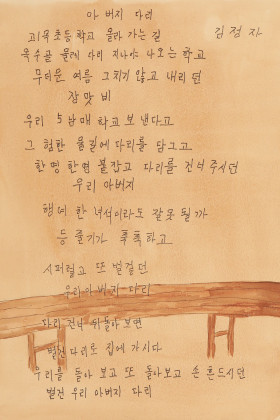 아 버지 다리
김 정 자
괴목초등학교 올라가는 길
옥수골 물레 다리 지나야 나오는 학교
무더운 여름 그치지 않고 내리던
장맛비
우리 5남매 학교 보낸다고
그 험한 물길에 다리를 담그고
한명 한명 붙잡고 다리를 건너 주시던
우리 아버지
행여 한 녀석이라도 잘못 될까
등 줄기가 축축하고
시퍼렇고 또 벌겋던
우리 아버지 다리
다리 건너 뒤돌아 보면
벌건 다리로 집에 가시다
우리를 돌아 보고 또 돌아보고 손 흔드시던
벌건 우리 아버지 다리